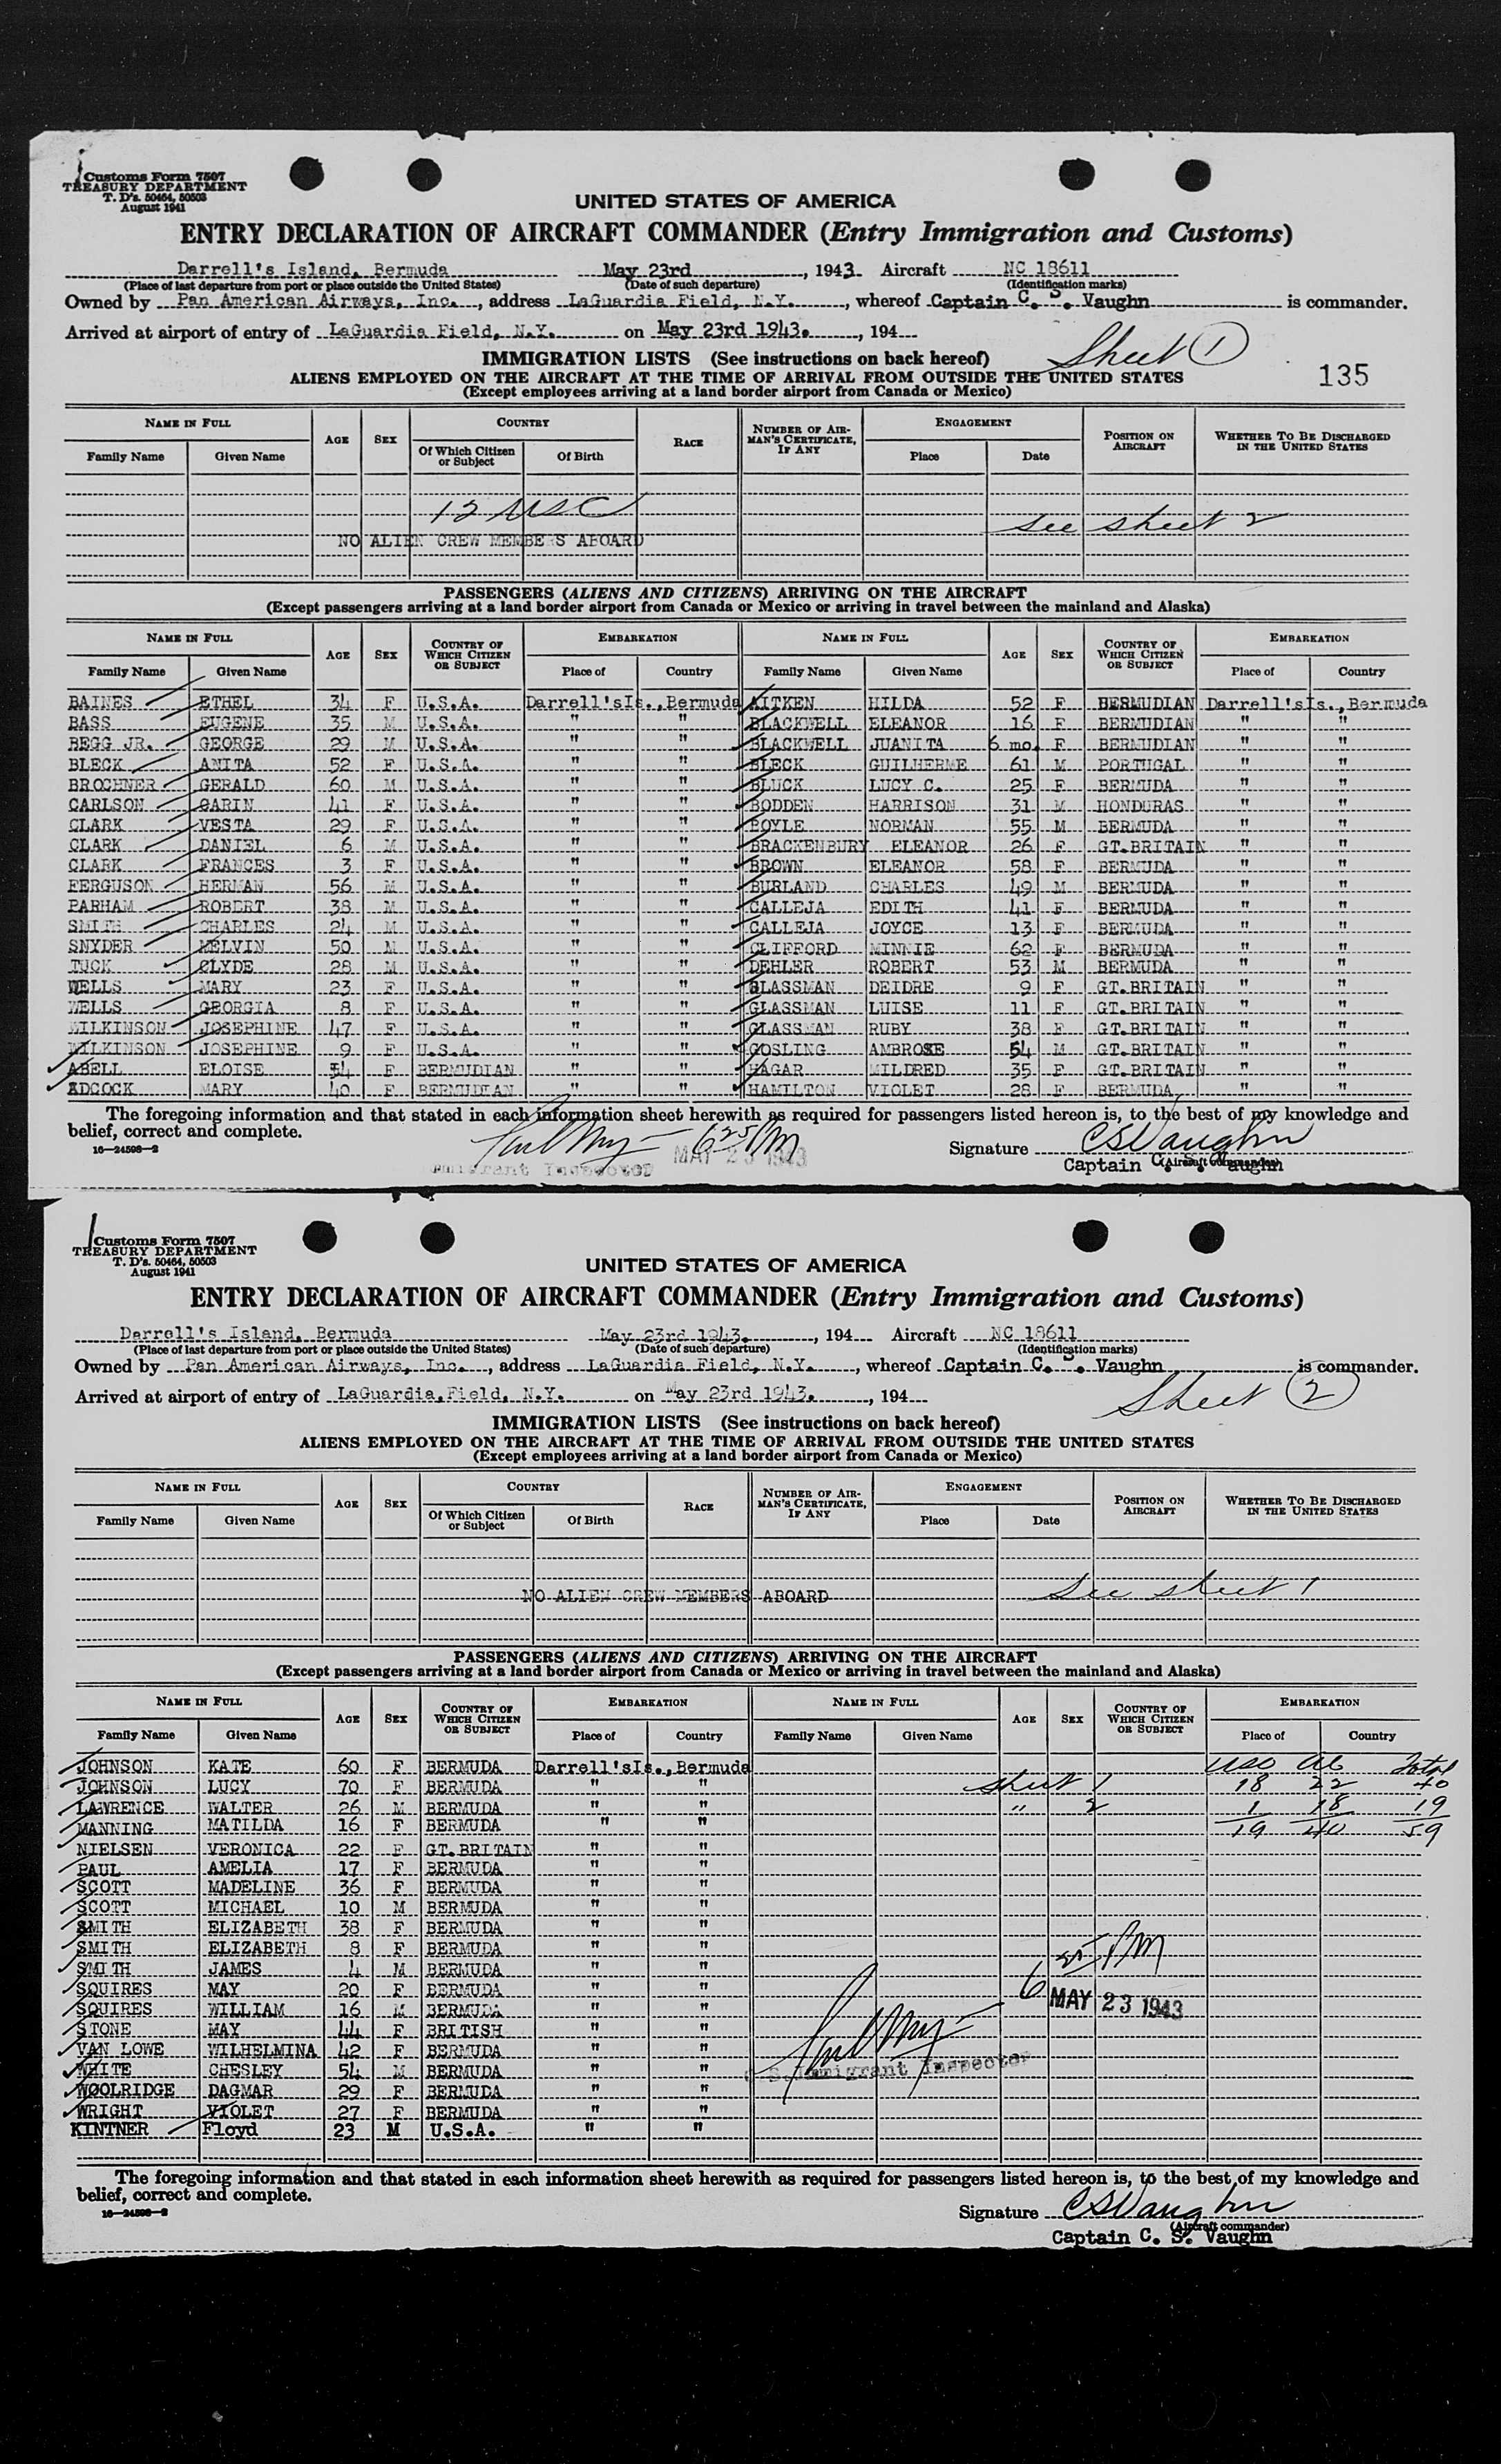 Customs Form 7507
TREASURY DEPARTMENT
T. D's. 50464, 50503
August 1941
UNITED STATES OF AMERICA
ENTRY DECLARATION OF AIRCRAFT COMMANDER (Entry Immigration and Customs)
Darrell's Island, Bermuda May 23rd, 1943. Aircraft NC 18611
(Place of last departure from port or place outside the United States) (Date of such departure) (Identification marks)
Owned by Pan American Airways, Inc., address LaGuardia Field, N.Y., whereof Captain C. S. Vaughn is commander.
Arrived at airport of entry of LaGuardia Field, N.Y. on May 23rd 1943., 194
Sheet 1
IMMIGRATION LISTS (See instructions on back hereof)
ALIENS EMPLOYED ON THE AIRCRAFT AT THE TIME OF ARRIVAL FROM OUTSIDE THE UNITED STATES
135
(Except employees arriving at a land border airport from Canada or Mexico)
NAME IN FULL AGE SEX COUNTRY RACE NUMBER OF AIRMAN'S CERTIFICATE, IF ANY ENGAGEMENT POSITION ON AIRCRAFT WHETHER TO BE DISCHARGED IN THE UNITED STATES
Family Name Given Name Of Which Citizen or Subject Of Birth Place Date
12 USC
See sheet 2
NO ALIEN CREW MEMBERS ABOARD
PASSENGERS (ALIENS AND CITIZENS) ARRIVING ON THE AIRCRAFT
(Except passengers arriving at a land border airport from Canada or Mexico or arriving in travel between the mainland and Alaska)
NAME IN FULL AGE SEX COUNTRY OF WHICH CITIZEN OR SUBJECT EMBARKATION NAME IN FULL AGE SEX COUNTRY OF WHICH CITIZEN OR SUBJECT EMBARKATION
Family Name Given Name Place of Country Family Name Given Name Place of Country
BAINES ETHEL 34 F U.S.A. Darrell'sIs., Bermuda AITKEN HILDA 52 F BERMUDIAN Darrell'sIs., Bermuda
BASS EUGENE 35 M U.S.A. " " BLACKWELL ELEANOR 16 F BERMUDIAN " "
BEGG JR. GEORGE 29 M U.S.A. " " BLACKWELL JUANITA 6 mo. F BERMUDIAN " "
BLECK ANITA 52 F U.S.A. " " BLECK GUILHERME 61 M PORTUGAL " "
BROCHNER GERALD 60 M U.S.A. " " BLUCK LUCY C. 25 F BERMUDA " "
CARLSON CARIN 41 F U.S.A. " " BODDEN HARRISON 31 M HONDURAS " "
CLARK VESTA 29 F U.S.A. " " BOYLE NORMAN 55 M BERMUDA " "
CLARK DANIEL 6 M U.S.A. " " BRACKENBURY ELEANOR 26 F GT.BRITAIN " "
CLARK FRANCES 3 F U.S.A. " " BROWN ELEANOR 58 F BERMUDA " "
FERGUSON HERMAN 56 M U.S.A. " " BURLAND CHARLES 49 M BERMUDA " "
PARHAM ROBERT 38 M U.S.A. " " CALLEJA EDITH 41 F BERMUDA " "
SMITH CHARLES 24 M U.S.A. " " CALLEJA JOYCE 13 F BERMUDA " "
SNYDER MELVIN 50 M U.S.A. " " CLIFFORD MINNIE 62 F BERMUDA " "
TUCK CLYDE 28 M U.S.A. " " DEHLER ROBERT 53 M BERMUDA " "
WELLS MARY 23 F U.S.A. " " GLASSMAN DEIDRE 9 F GT.BRITAIN " "
WELLS GEORGIA 8 F U.S.A. " " GLASSMAN LUISE 11 F GT.BRITAIN " "
WILKINSON JOSEPHINE 47 F U.S.A. " " GLASSMAN RUBY 38 F GT.BRITAIN " "
WILKINSON JOSEPHINE 9 F U.S.A. " " GOSLING AMBROSE 54 M GT.BRITAIN " "
ABELL ELOISE 54 F BERMUDIAN " " HAGAR MILDRED 35 F GT.BRITAIN " "
ADCOCK MARY 40 F BERMUDIAN " " HAMILTON VIOLET 28 F BERMUDA " "
The foregoing information and that stated in each information sheet herewith as required for passengers listed hereon is, to the best of my knowledge and
belief, correct and complete.
16—24598-2
6 25 PM
Immigrant Inspector MAY 23 1943
Signature CSVaughn
(Aircraft commander)
Captain C. S. Vaughn
Customs Form 7507
TREASURY DEPARTMENT
T. D's. 50464, 50503
August 1941
UNITED STATES OF AMERICA
ENTRY DECLARATION OF AIRCRAFT COMMANDER (Entry Immigration and Customs)
Darrell's Island, Bermuda May 23rd 1943., 194 Aircraft NC 18611
(Place of last departure from port or place outside the United States) (Date of such departure) (Identification marks)
Owned by Pan American Airways, Inc., address LaGuardia Field, N.Y., whereof Captain C. S. Vaughn is commander.
Arrived at airport of entry of LaGuardia Field, N.Y. on May 23rd 1943., 194
Sheet 2
IMMIGRATION LISTS (See instructions on back hereof)
ALIENS EMPLOYED ON THE AIRCRAFT AT THE TIME OF ARRIVAL FROM OUTSIDE THE UNITED STATES
(Except employees arriving at a land border airport from Canada or Mexico)
NAME IN FULL AGE SEX COUNTRY RACE NUMBER OF AIRMAN'S CERTIFICATE, IF ANY ENGAGEMENT POSITION ON AIRCRAFT WHETHER TO BE DISCHARGED IN THE UNITED STATES
Family Name Given Name Of Which Citizen or Subject Of Birth Place Date
NO ALIEN CREW MEMBERS ABOARD See sheet 1
PASSENGERS (ALIENS AND CITIZENS) ARRIVING ON THE AIRCRAFT
(Except passengers arriving at a land border airport from Canada or Mexico or arriving in travel between the mainland and Alaska)
NAME IN FULL AGE SEX COUNTRY OF WHICH CITIZEN OR SUBJECT EMBARKATION NAME IN FULL AGE SEX COUNTRY OF WHICH CITIZEN OR SUBJECT EMBARKATION
Family Name Given Name Place of Country Family Name Given Name Place of Country
JOHNSON KATE 60 F BERMUDA Darrell'sIs., Bermuda USC Al Total
JOHNSON LUCY 70 F BERMUDA " " Sheet 1 18 22 40
LAWRENCE WALTER 26 M BERMUDA " " " 2 1 18 19
MANNING MATILDA 16 F BERMUDA " " 19 40 59
NIELSEN VERONICA 22 F GT.BRITAIN " "
PAUL AMELIA 17 F BERMUDA " "
SCOTT MADELINE 36 F BERMUDA " "
SCOTT MICHAEL 10 M BERMUDA " "
SMITH ELIZABETH 38 F BERMUDA " "
SMITH ELIZABETH 8 F BERMUDA " "
SMITH JAMES 4 M BERMUDA " "
SQUIRES MAY 20 F BERMUDA " "
SQUIRES WILLIAM 16 M BERMUDA " "
STONE MAY 44 F BRITISH " "
VAN LOWE WILHELMINA 42 F BERMUDA " "
WHITE CHESLEY 54 M BERMUDA " "
WOOLRIDGE DAGMAR 29 F BERMUDA " "
WRIGHT VIOLET 27 F BERMUDA " "
KINTNER Floyd 23 M U.S.A. " "
6 25 PM
MAY 23 1943
U.S. Immigrant Inspector
The foregoing information and that stated in each information sheet herewith as required for passengers listed hereon is, to the best of my knowledge and
belief, correct and complete.
16—24598-2
Signature CSVaughn
(Aircraft commander)
Captain C. S. Vaughn